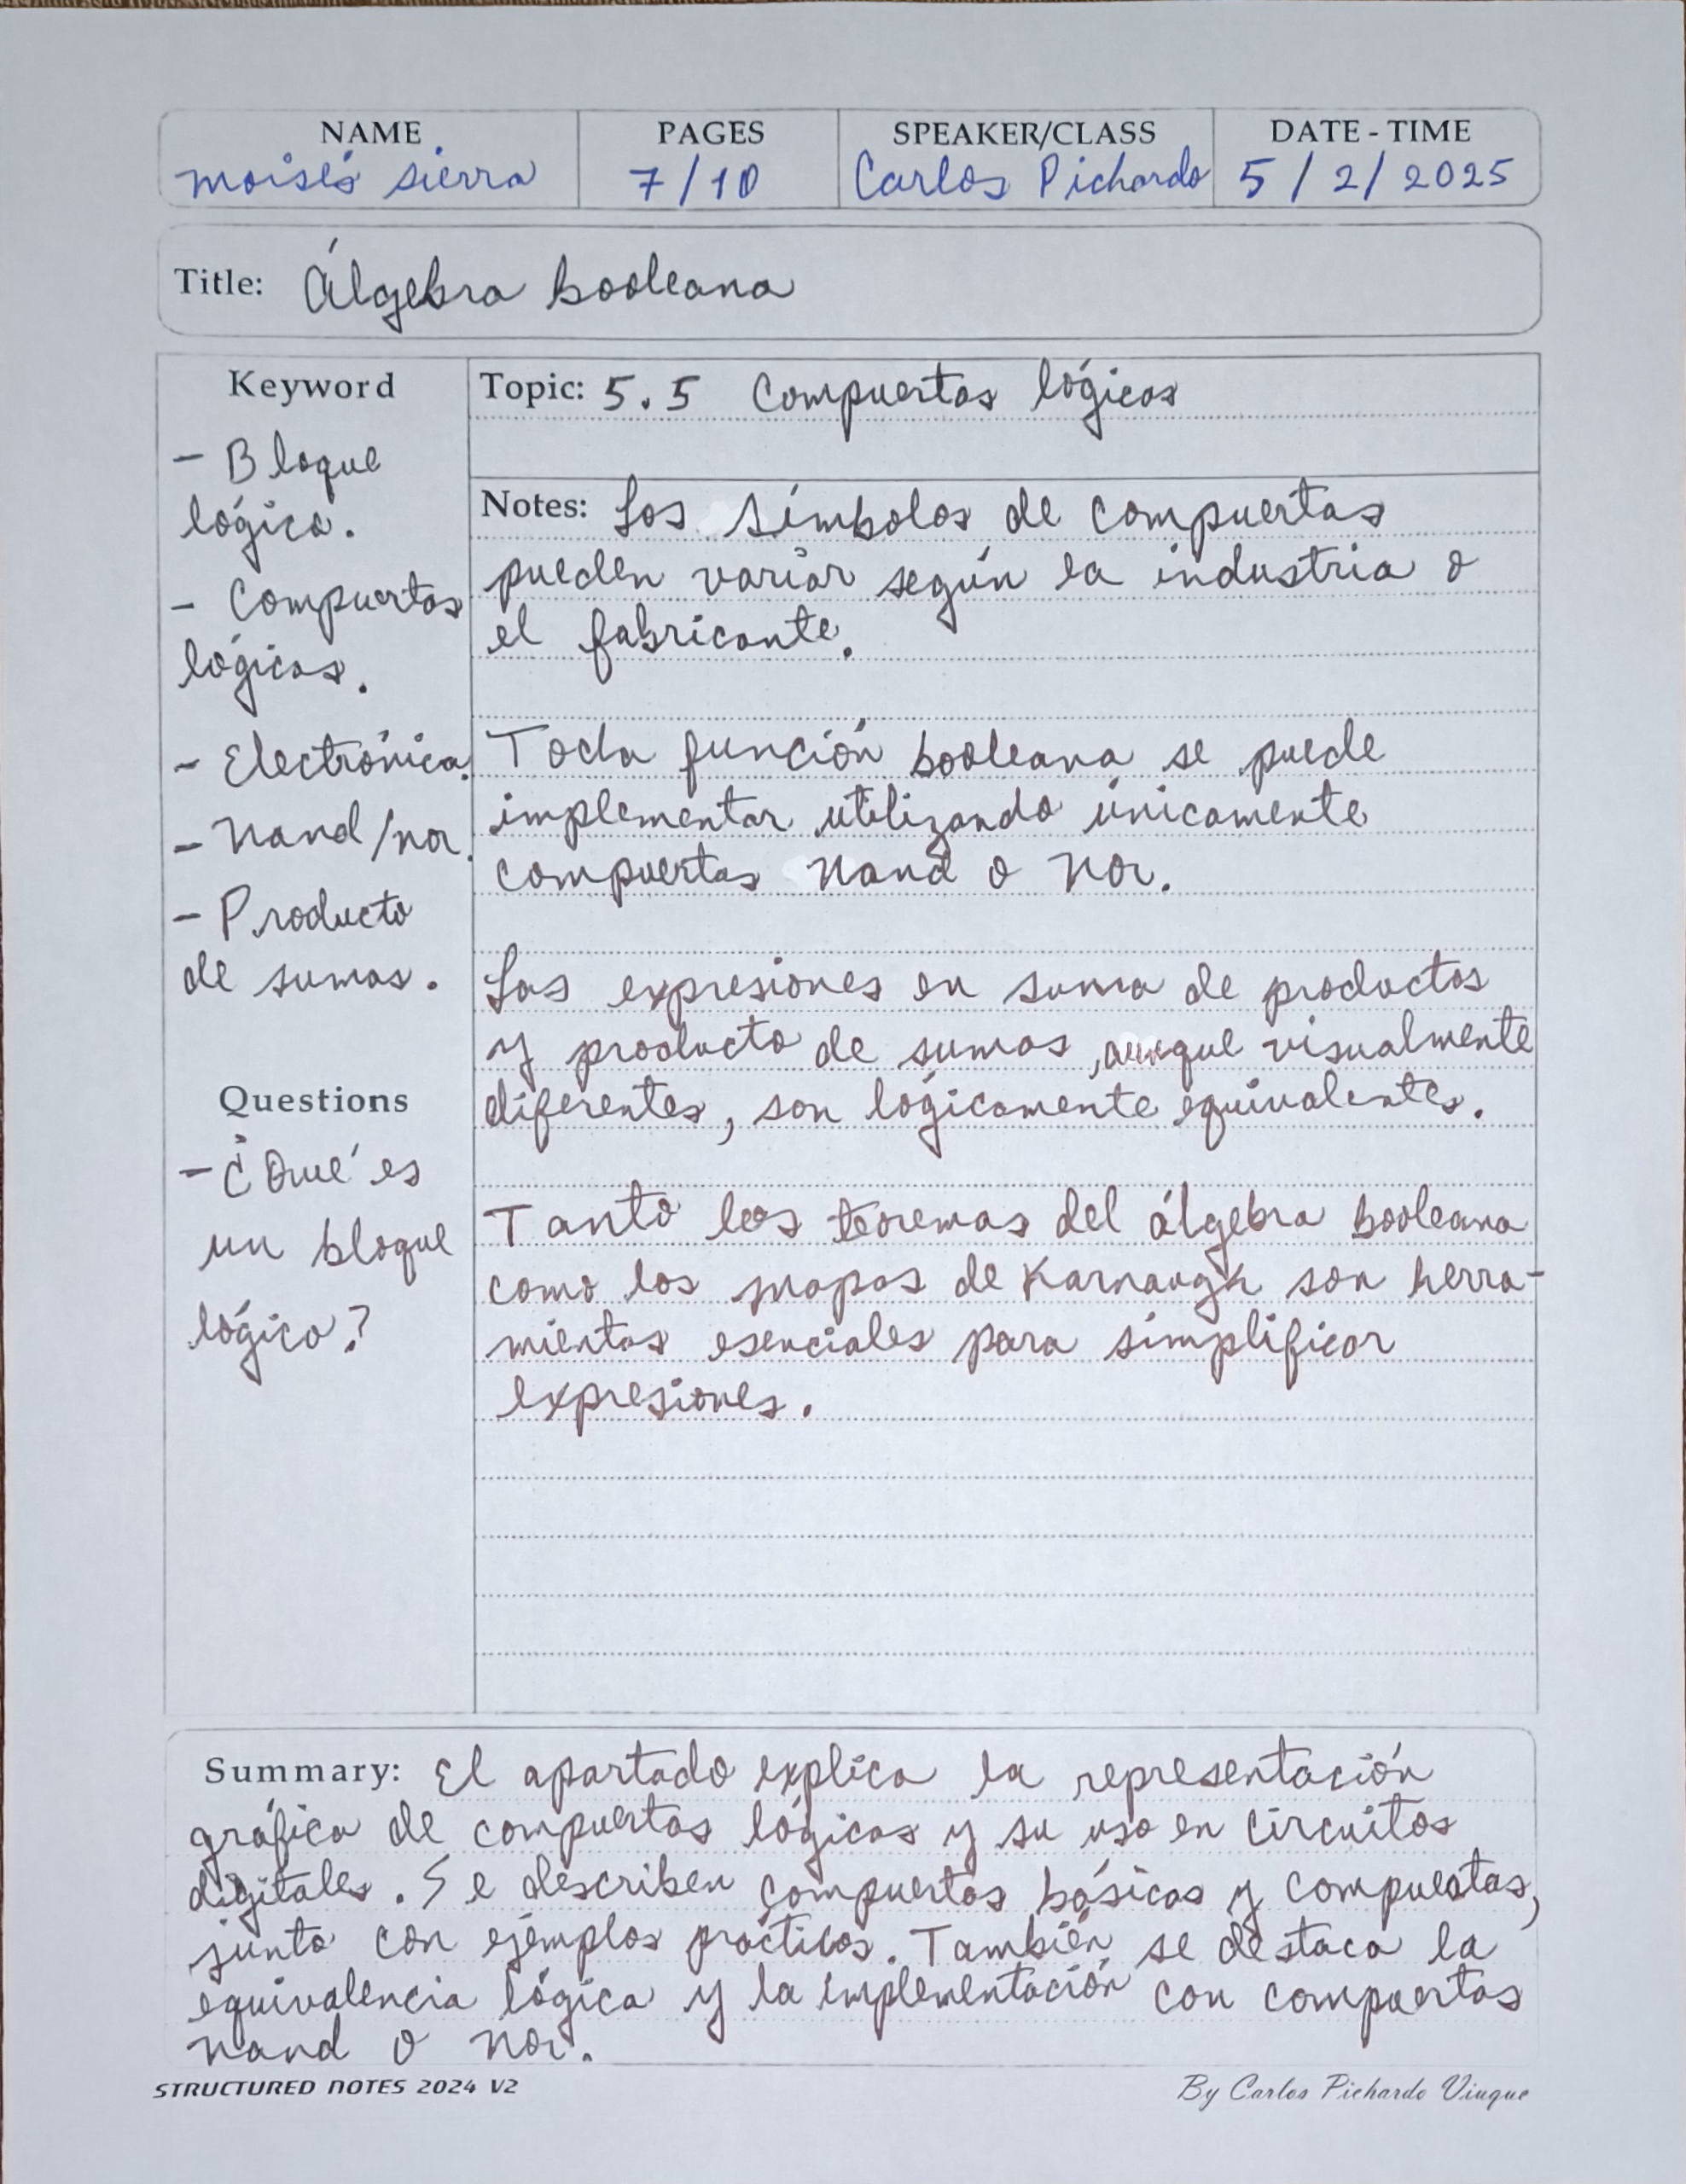 NAME PAGES SPEAKER/CLASS DATE - TIME
moisés sierra 7/10 Carlos Pichardo 5/2/2025
Title: Álgebra booleana
Keyword
- Bloque
lógico.
- Compuertas
lógicas.
- Electrónica.
- Nand/nor.
- Producto
de sumas.
Questions
- ¿Qué es
un bloque
lógico?
Topic: 5.5 Compuertas lógicas
Notes: Los símbolos de compuertas
pueden variar según la industria o
el fabricante.
Toda función booleana se puede
implementar utilizando únicamente
compuertas Nand o Nor.
Las expresiones en suma de productos
y producto de sumas, aunque visualmente
diferentes, son lógicamente equivalentes.
Tanto los teoremas del álgebra booleana
como los mapas de Karnaugh son herra-
mientas esenciales para simplificar
expresiones.
Summary: El apartado explica la representación
gráfica de compuertas lógicas y su uso en circuitos
digitales. Se describen compuertas básicas y compuestas,
junto con ejemplos prácticos. También se destaca la
equivalencia lógica y la implementación con compuertas
nand o nor.
STRUCTURED NOTES 2024 V2 By Carlos Pichardo Viuque